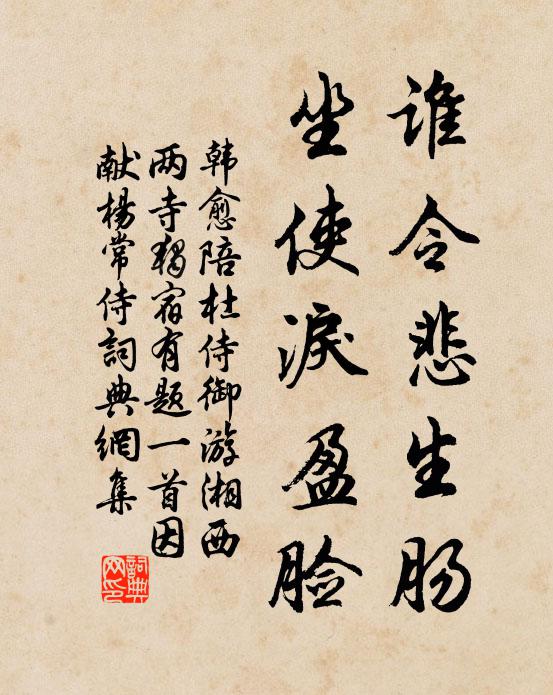 谁令悲生肠
坐使淚盈脸
韩愈陪杜侍御游湘西
两寺独宿有题一首因
献楊常侍詞典網集
詞典
网印